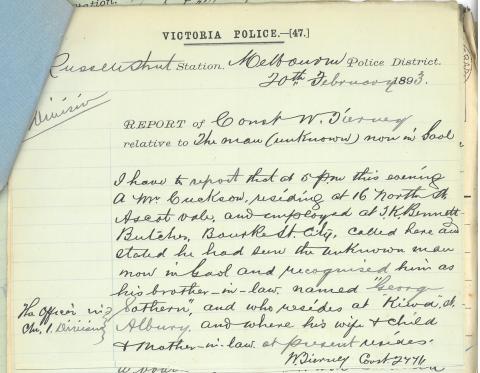 VICTORIA POLICE.—[47.]
Russell Street Station. Melbourne Police District.
20th February 1893.
Division
REPORT of Const W. Tierney
relative to The man (unknown) now in Gaol
I have to report that at 5 pm this evening
A Mr Cuckson, residing at 16 North St
Ascot vale, and employed at J.K. Bennett
Butcher, Bourke St. City, called here and
stated he had seen the unknown man
now in Gaol and recognised him as
his brother-in-law named "George
Sothern", and who resides at "Kiewa" St.
Albury. and where his wife & child
& mother-in-law at present resides.
W Tierney Const 2776
The Officer in
Ch. 1. Division